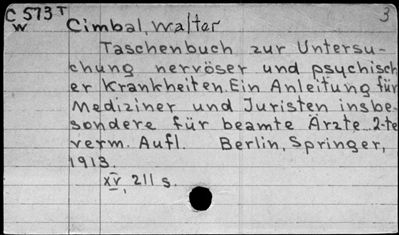 C 573 T 3
W Cimbal, Walter
Taschenbuch zur Untersu-
chung nervöser und psychisch
er Krankheiten. Ein Anleitung für
Mediziner und Juristen insbe-
sondere für beamte Ärzte 2-te
verm. Aufl. Berlin, Springer,
1913.
XV, 211 s.